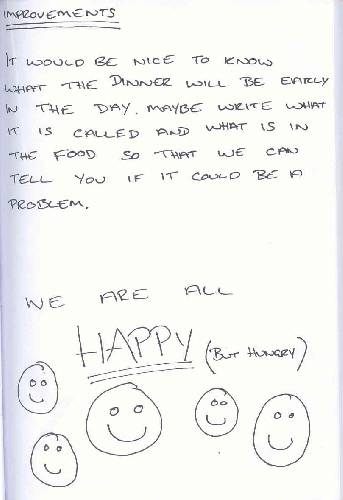 IMPROVEMENTS
IT WOULD BE NICE TO KNOW
WHAT THE DINNER WILL BE EARLY
IN THE DAY. MAYBE WRITE WHAT
IT IS CALLED AND WHAT IS IN
THE FOOD SO THAT WE CAN
TELL YOU IF IT COULD BE A
PROBLEM.
WE ARE ALL
HAPPY (BUT HUNGRY)